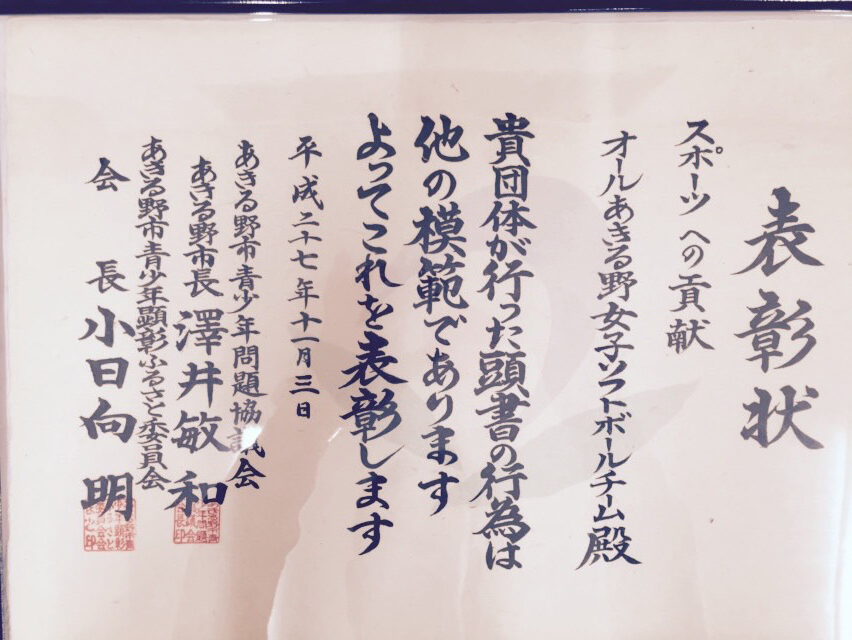 表彰状
スポーツへの貢献
オールあきる野女子ソフトボールチーム殿
貴団体が行った頭書の行為は
他の模範であります
よってこれを表彰します
平成二十七年十一月三日
あきる野市青少年問題協議会
あきる野市長 澤井敏和
あきる野市青少年顕彰ふるさと委員会
会長 小日向明